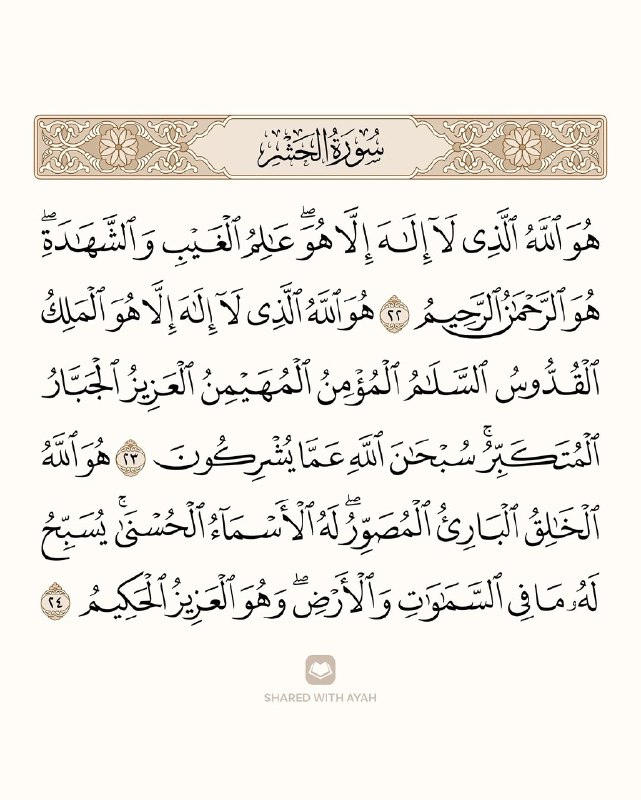 سُورَةُ الحَشْرِ
هُوَ ٱللَّهُ ٱلَّذِى لَآ إِلَـٰهَ إِلَّا هُوَ ۖ عَـٰلِمُ ٱلْغَيْبِ وَٱلشَّهَـٰدَةِ ۖ
هُوَ ٱلرَّحْمَـٰنُ ٱلرَّحِيمُ ٢٢ هُوَ ٱللَّهُ ٱلَّذِى لَآ إِلَـٰهَ إِلَّا هُوَ ٱلْمَلِكُ
ٱلْقُدُّوسُ ٱلسَّلَـٰمُ ٱلْمُؤْمِنُ ٱلْمُهَيْمِنُ ٱلْعَزِيزُ ٱلْجَبَّارُ
ٱلْمُتَكَبِّرُ ۚ سُبْحَـٰنَ ٱللَّهِ عَمَّا يُشْرِكُونَ ٢٣ هُوَ ٱللَّهُ
ٱلْخَـٰلِقُ ٱلْبَارِئُ ٱلْمُصَوِّرُ ۖ لَهُ ٱلْأَسْمَآءُ ٱلْحُسْنَىٰ ۚ يُسَبِّحُ
لَهُۥ مَا فِى ٱلسَّمَـٰوَٰتِ وَٱلْأَرْضِ ۖ وَهُوَ ٱلْعَزِيزُ ٱلْحَكِيمُ ٢٤
SHARED WITH AYAH